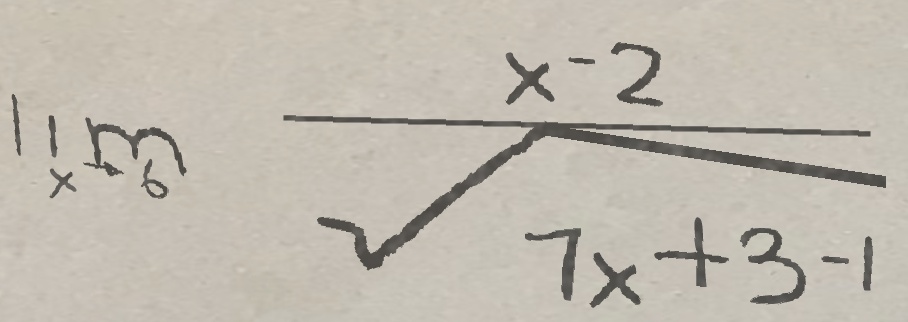 lim x→6 \frac{x-2}{\sqrt{7x+3-1}}